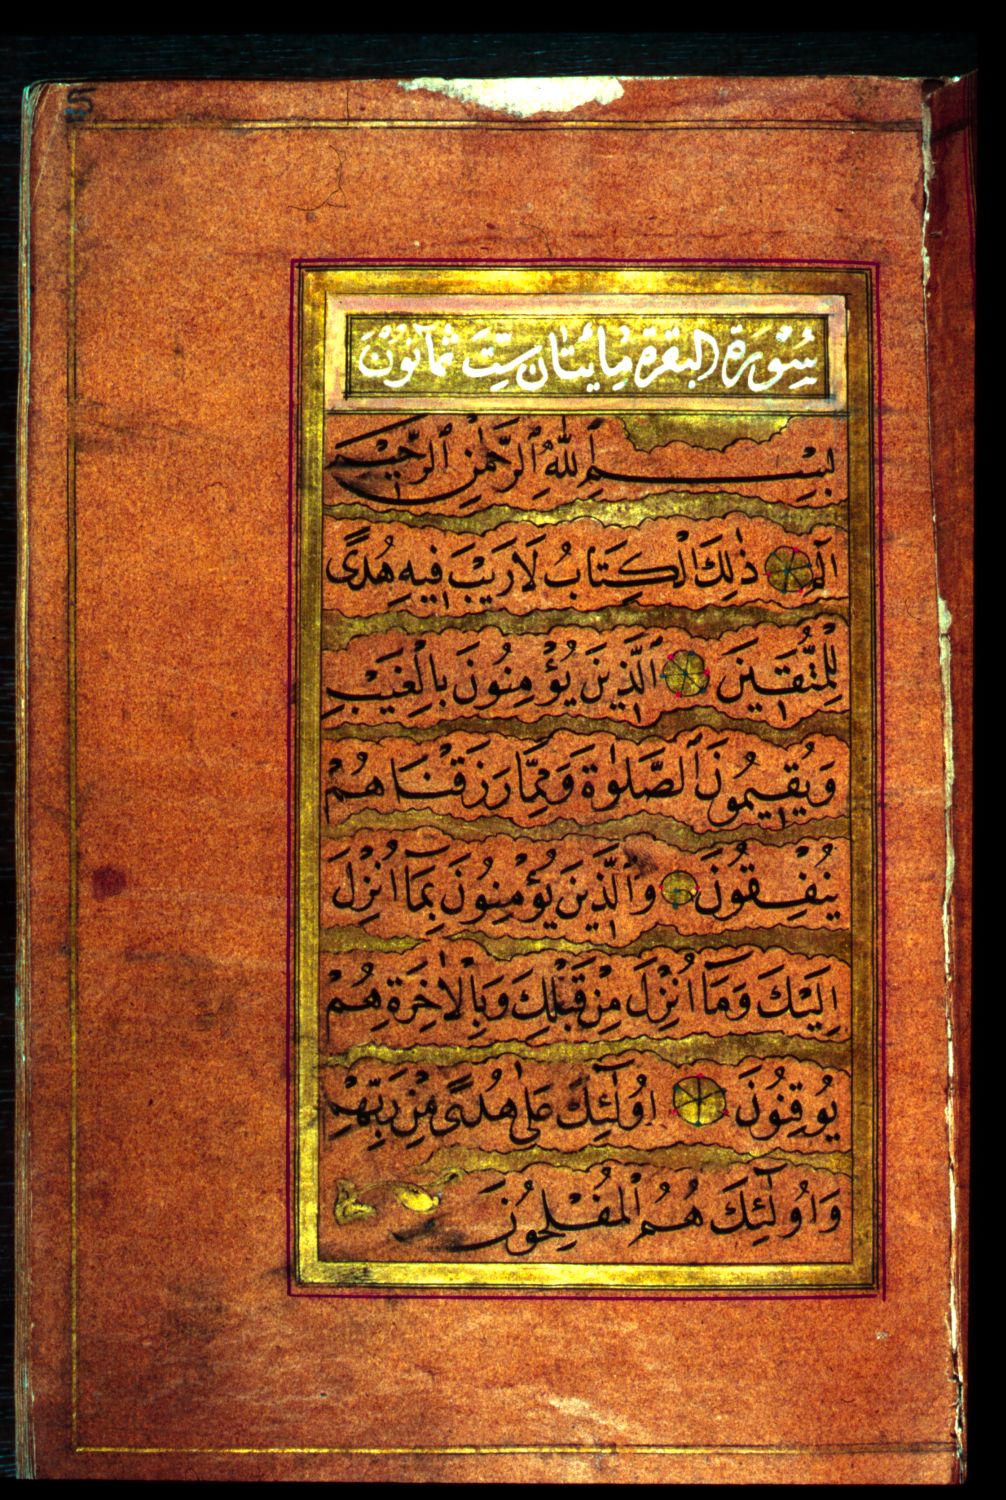 5
سُوْرَةُ البَقَرَة مِأیَتَان سِتَ ثمآنوُنَ
بِسْمِ اللّٰهِ ٱلرَّحْمٰنِ ٱلرَّحٖيمِ
الٓمٓ ذٰلِكَ الْكِتَابُ لَارَيْبَ فٖيهِ هُدًى
لِلْمُتَّقٖينَ ٱلَّذٖينَ يُؤْمِنُونَ بِالْغَيْبِ
وَيُقٖيمُونَ ٱلصَّلٰوةَ وَمِمَّا رَزَقْنَاهُمْ
يُنْفِقُونَ وَٱلَّذٖينَ يُؤْمِنُونَ بِمَآ اُنْزِلَ
اِلَيْكَ وَمَآ اُنْزِلَ مِنْ قَبْلِكَ وَبِالْاٰخِرَةِ هُمْ
يُوقِنُونَ اُولٰٓئِكَ عَلٰى هُدًى مِنْ رَبِّهِمْ
وَاُولٰٓئِكَ هُمُ الْمُفْلِحُونَ